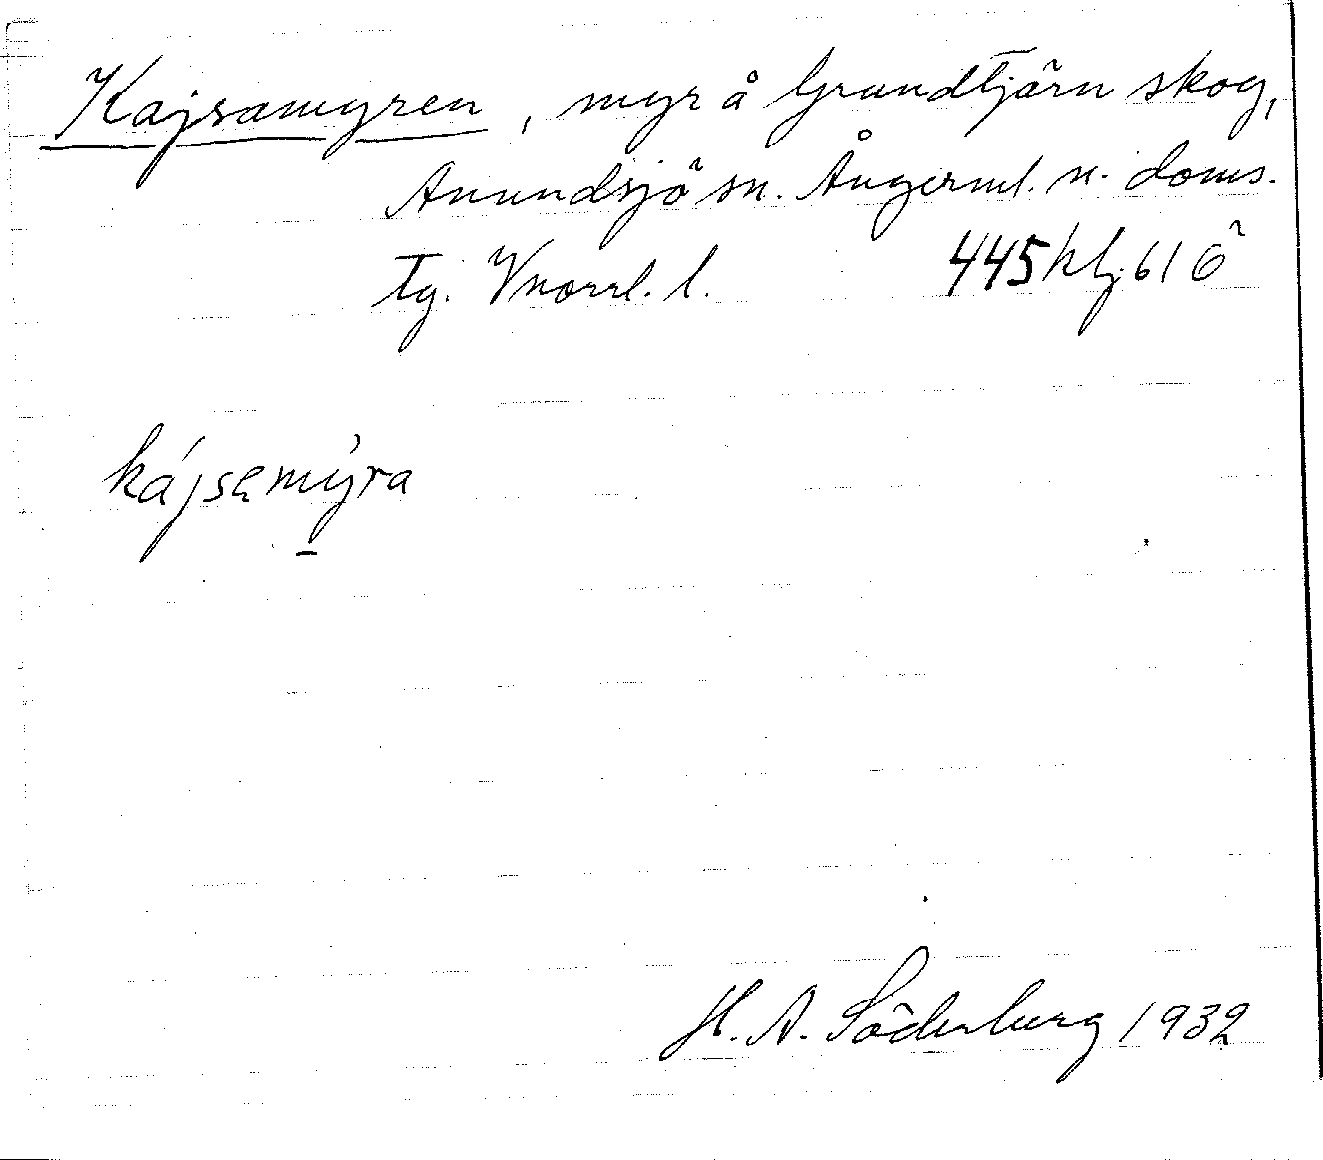 Kajsamyren, myr å Grundtjärn skog,
Anundsjö sn. Ångerml. n. doms.
tg. Vnorrl. l. 445 klj 61 Ö
kájsamy̆ra
H. A. Söderberg 1932